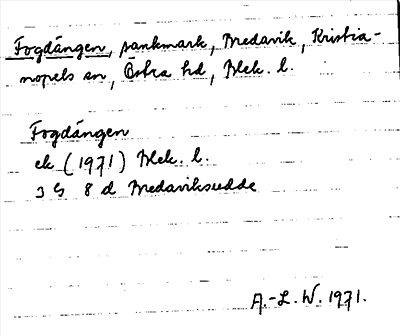 Fogdängen, sankmark, Medavik, Kristia-
nopels sn, Östra hd, Blek. l.
Fogdängen
ek (1971) Blek. l.
3 G 8 d Medaviksudde
A.-L. W. 1971.